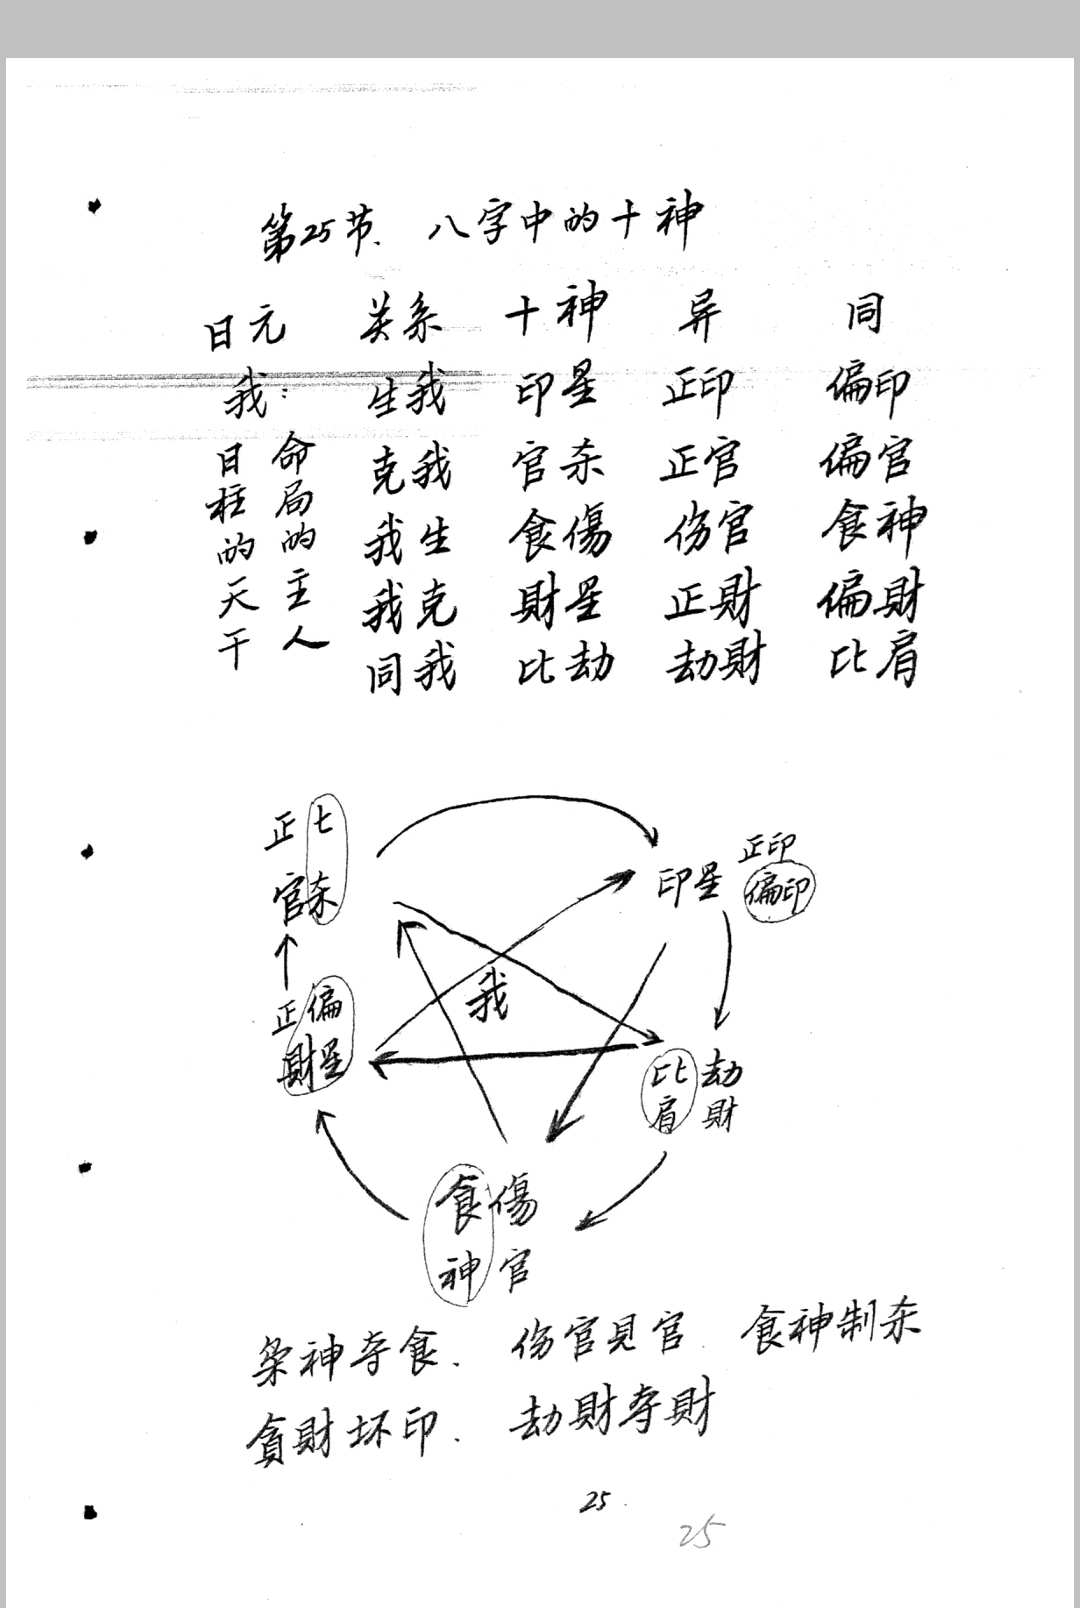 第25节、八字中的十神
日元 关系 十神 异 同
我： 生我 印星 正印 偏印
克我 官杀 正官 偏官
我生 食傷 伤官 食神
我克 財星 正財 偏財
同我 比劫 劫財 比肩
日柱的天干
命局的主人
正官
七杀
印星
正印
偏印
我
正偏
財星
比肩
劫財
食神
傷官
枭神夺食. 伤官見官. 食神制杀
貪財坏印. 劫財夺財
25.
25